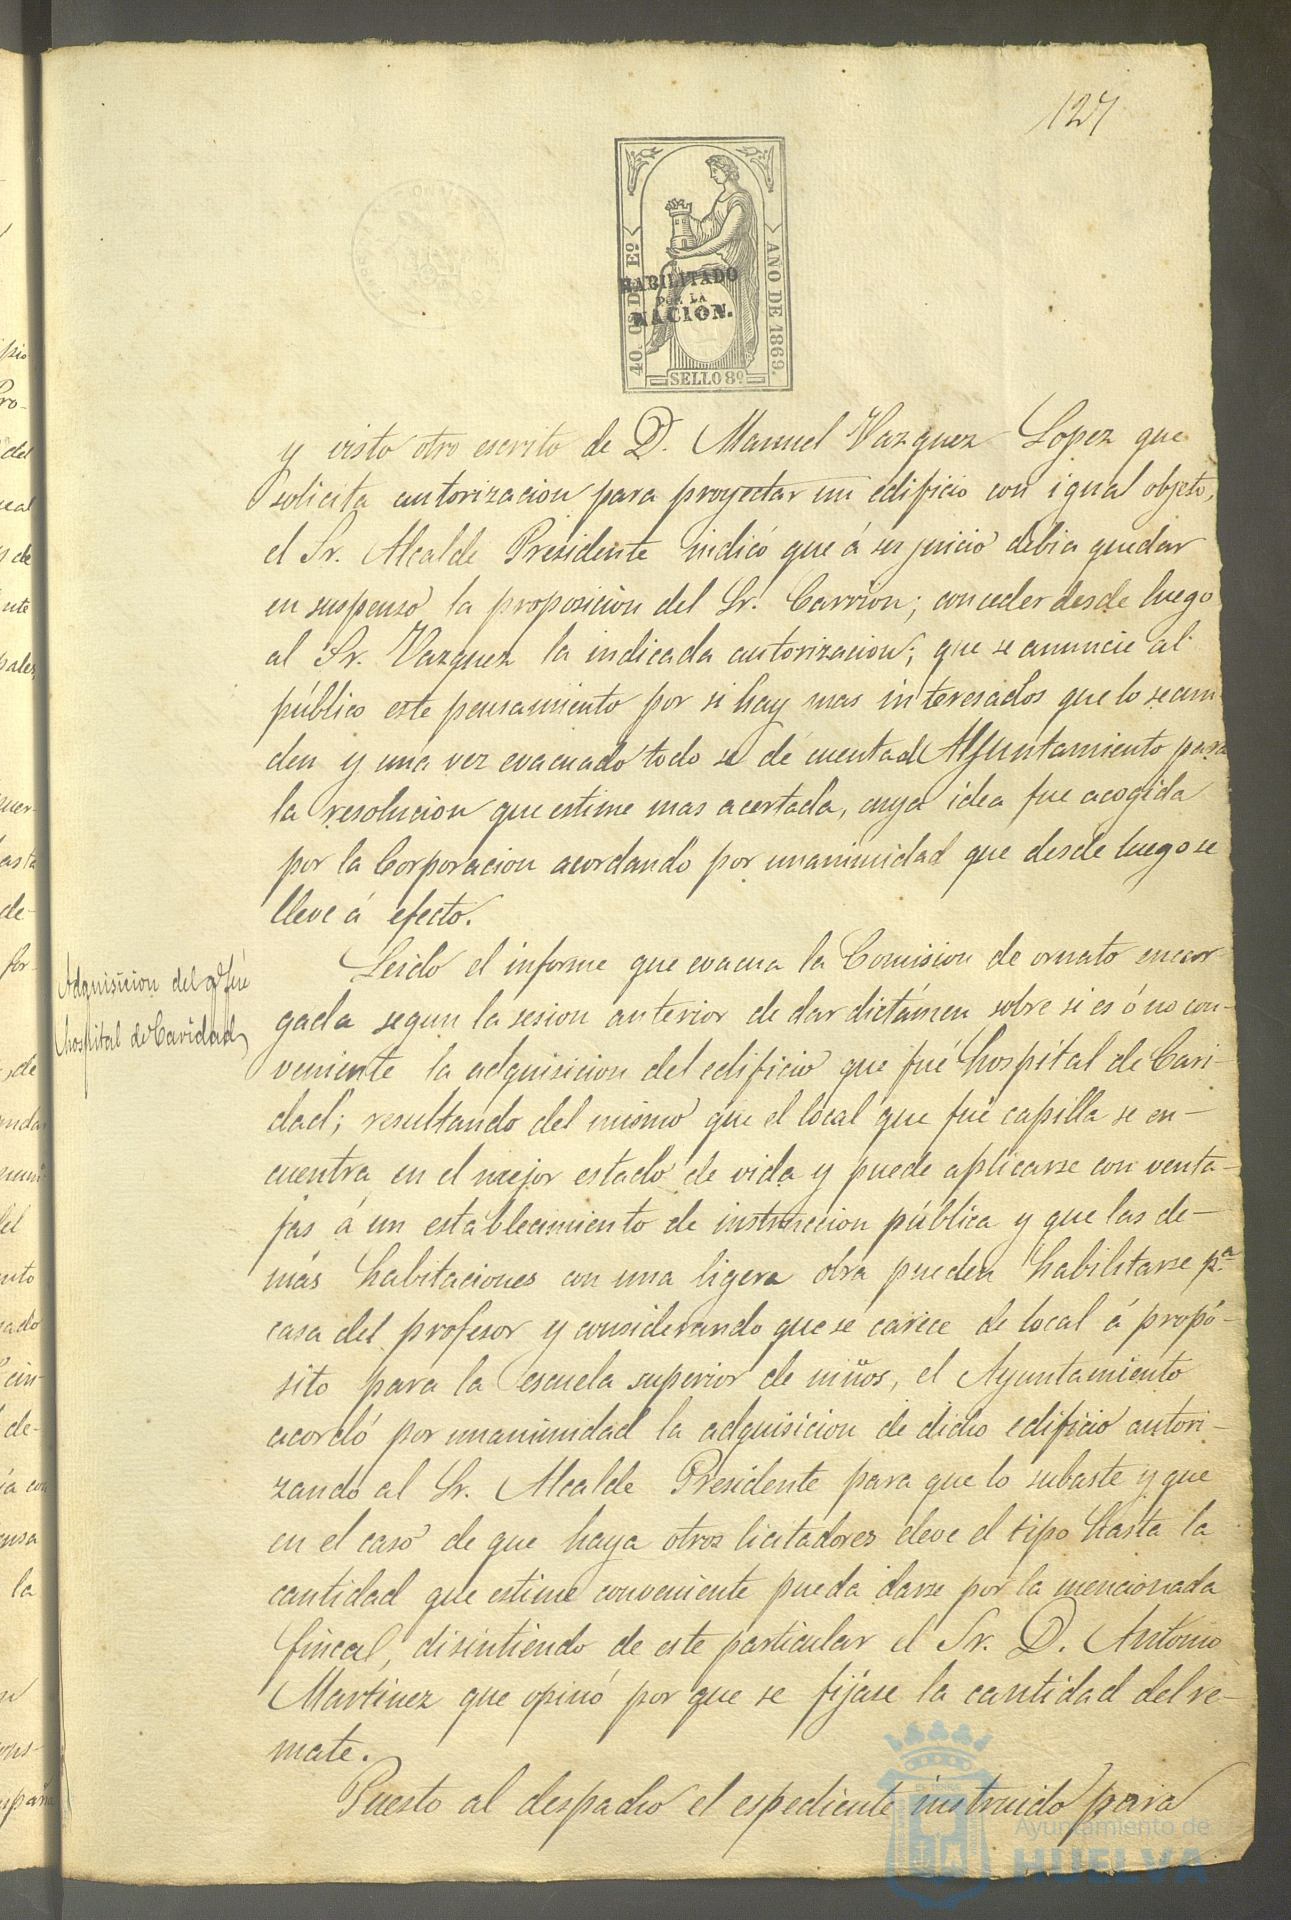 127
40. Cs DE Eº AÑO DE 1869.
HABILITADO
POR LA
NACION.
SELLO 8º
y visto otro escrito de D. Manuel Vazquez Lopez que
solicita autorizacion para proyectar un edificio con igual objeto,
el Sr. Alcalde Presidente indicó que á su juicio debia quedar
en suspenso la proposicion del Sr. Carrion; conceder desde luego
al Sr. Vazquez la indicada autorizacion; que se anuncie al
público este pensamiento por si hay mas interesados que lo secun-
den y una vez evacuado todo se dé cuenta al Ayuntamiento para
la resolucion que estime mas acertada, cuya idea fue acogida
por la Corporacion acordando por unanimidad que desde luego se
lleve á efecto.
Adquisicion del q fué
hospital de Caridad
Leido el informe que evacua la Comision de ornato encar-
gada segun la sesion anterior de dar dictámen sobre si es ó no con-
veniente la adquisicion del edificio que fué hospital de Cari-
dad; resultando del mismo que el local que fué capilla se en-
cuentra en el mejor estado de vida y puede aplicarse con venta-
jas á un establecimiento de instruccion pública y que las de-
más habitaciones con una ligera obra pueden habilitarse p.ª
casa del profesor y considerando que se carece de local á propó-
sito para la escuela superior de niños, el Ayuntamiento
acordó por unanimidad la adquisicion de dicho edificio autori-
zando al Sr. Alcalde Presidente para que lo subaste y que
en el caso de que haya otros licitadores eleve el tipo hasta la
cantidad que estime conveniente pueda darse por la mencionada
finca, disintiendo de este particular el Sr. D. Antonio
Martinez que opinó por que se fijáse la cantidad del re-
mate.
Puesto al despacho el espediente instruido para
Ayuntamiento de
HUELVA